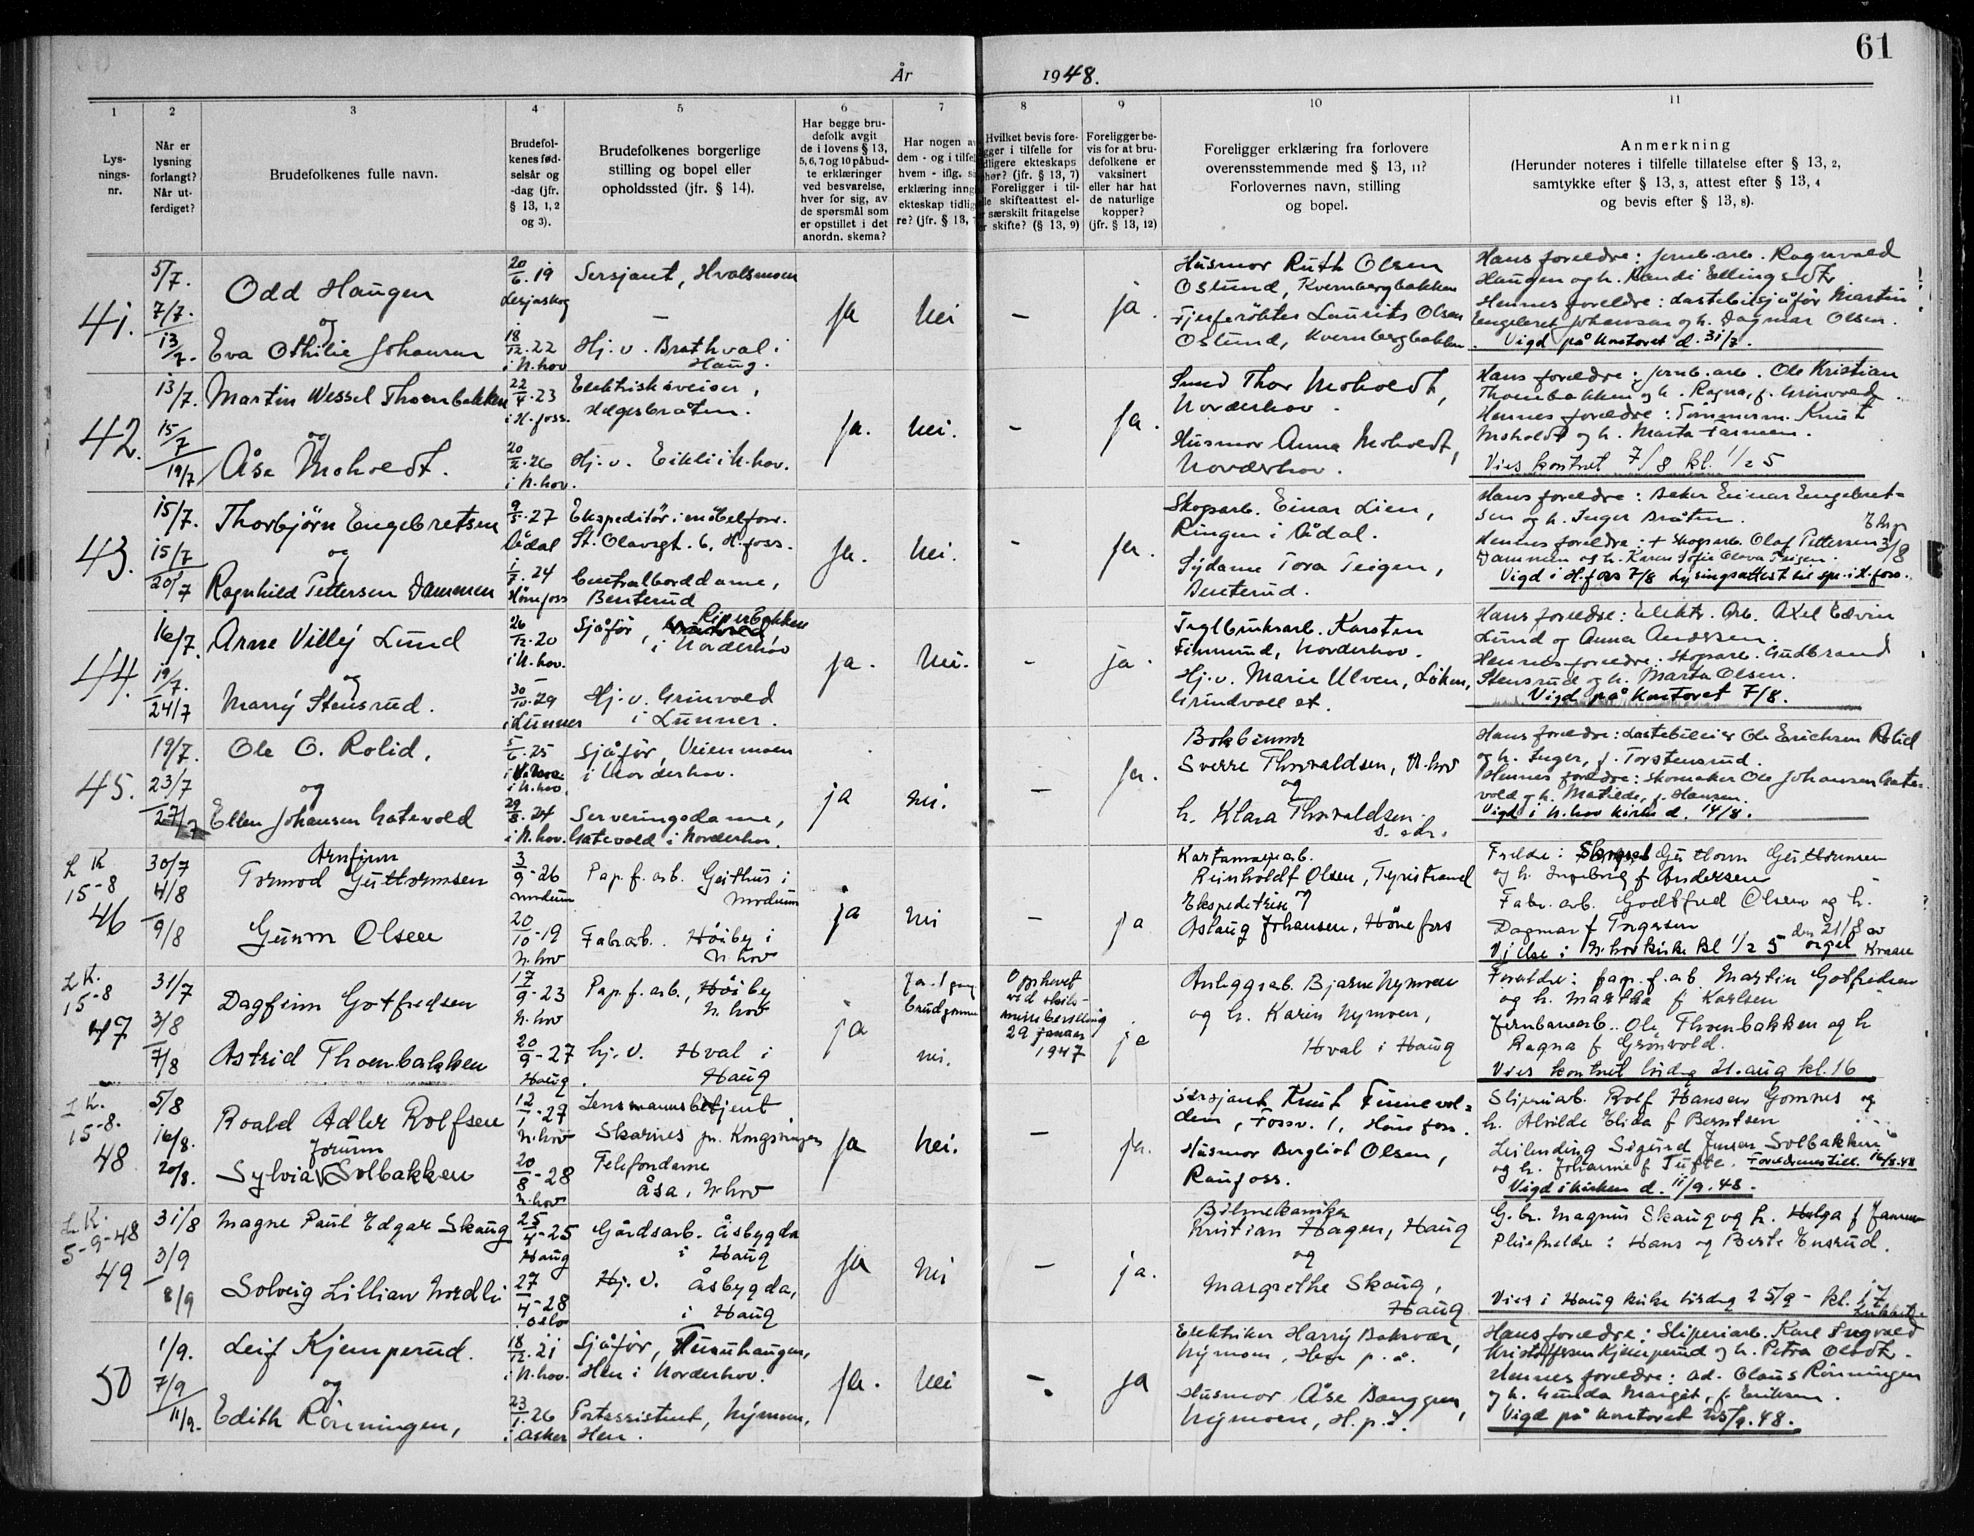 61
År 1948.
1 2 3 4 5 6 7 8 9 10 11
Lys-
nings-
nr.
Når er
lysning
forlangt?
Når ut-
ferdiget?
Brudefolkenes fulle navn.
Brudefol-
kenes fød-
selsår og
-dag (jfr.
§ 13, 1, 2
og 3).
Brudefolkenes borgerlige
stilling og bopel eller
opholdssted (jfr. § 14).
Har begge bru-
defolk avgit
de i lovens § 13,
5, 6, 7 og 10 påbud-
te erklæringer
ved besvarelse,
hver for sig, av
de spørsmål som
er opstillet i det
anordn. skema?
Har nogen a
dem - og i tilfel
hvem - iflg. s
erklæring inng
ekteskap tidlig
re? (jfr. § 13,
Hvilket bevis fore-
gger i tilfelle for
dligere ekteskaps
hør? (jfr. § 13, 7)
Foreligger i til-
le skifteattest el-
særskilt fritagelse
r skifte? (§ 13, 9)
Foreligger be-
vis for at bru-
defolkene er
vaksinert
eller har hat
de naturlige
kopper?
(jfr. § 13, 12)
Foreligger erklæring fra forlovere
overensstemmende med § 13, 11?
Forlovernes navn, stilling
og bopel.
Anmerkning
(Herunder noteres i tilfelle tillatelse efter § 13, 2,
samtykke efter § 13, 3, attest efter § 13, 4
og bevis efter § 13, 8).
41.
5/7.
7/7.
13/7.
Odd Haugen
og
Eva Othilie Johansen
20/6.19
Lesjaskog
18/12.22
i N.hov
Sersjant, Hvalsmoen
Hj. v. Brathval i
Haug.
ja
nei
–
ja.
Husmor Ruth Olsen
Oslund, Kvernbergbakken
Fjerfeøkter Laurits Olsen
Oslund, Kvernbergbakken.
Hans foreldre: jernb.arb. Ragnvald
Haugen og h. Randi Ellingsdtr
Hennes foreldre: Lastebilsjåfør Martin
Engebret Johansen og h. Dagmar Olsen.
Vigd på kontoret d. 31/7.
42.
13/7.
15/7
19/7
Martin Wessel Thoenbakken
og
Åse Moholdt.
22/4.23
i H.foss.
20/2.26
i N.hov.
Elektrisksveiser,
Hægesbråten.
Hj. v. Eikli i N.hov.
ja.
nei.
–
ja.
Smed Thor Moholdt,
Norderhov.
Husmor Anna Moholdt,
Norderhov.
Hans foreldre: jernb.arb. Ole Kristian
Thoenbakken og h. Ragna, f. Grinvold.
Hennes foreldre: Tømmerm. Knut
Moholdt og h. Marta Farmen.
Vies kontoret 7/8 kl. 1/2 5
43.
15/7.
15/7
20/7
Thorbjørn Engebretsen
og
Ragnhild Pettersen Dammen
9/5.27
Ådal
1/7.24
Hönefoss
Ekspeditör i möbelforr.
St. Olavsgt. 6, H.foss.
Centralborddame,
Benterud
ja.
nei.
–
ja.
Skogsarb. Einar Lien,
Ringen i Ådal.
Sydame Tora Teigen,
Benterud.
Hans foreldre: Baker Einar Engebret-
sen og h. Inger Bråten.
Hennes foreldre: + Skogsarb. Olaf Pettersen
Dammen og h. Karen Sofie Olava Teigen.
3/8
Vigd i H.foss 7/8 Lysingsattest til spr. i H.foss.
44.
16/7.
19/7.
24/7
Arne Villÿ Lund
og
Marrÿ Stensrud.
26/12.20
i N.hov.
30/10.29
i Lunner
Sjåför, Ringbakken
i Norderhov
Hj. v. Grinvold
i Lunner.
ja.
nei.
–
ja.
Teglbruksarb. Karsten
Finnerud, Norderhov.
Hj. v. Marie Ulven, Löken,
Grindvollet.
Hans foreldre: Elektr. arb. Axel Edvin
Lund og Anna Andersen.
Hennes foreldre: Skogsarb. Gudbrand
Stensrud og h. Marta Olsen.
Vigd på kontoret 7/8.
45.
19/7.
23/7
27/7
Ole O. Rolid.
og
Ellen Johansen Gatevold
5/6.25
i N.hov.
29/8.24
i N.hov.
Sjåför, Veienmoen
i Norderhov.
Serveringsdame,
Gatevold i Norderhov.
ja
nei.
–
ja.
Bokbinner
Sverre Thorvaldsen, N.hov
og
h. Klara Thorvaldsen.
s. adr.
Hans foreldre: Lastebileier Ole Erichsen Rolid
og h. Inger, f. Torstensrud.
Hennes foreldre: Skomaker Ole Johansen Gate-
vold og h. Matilde, f. Hansen.
Vigd i N.hov kirke d. 14/8.
L K
15-8
46
30/7
4/8
9/8
Arnfinn
Tormod Guttormsen
Gunn Olsen
3/9-26
Modum
20/10-19
N.hov
Pap. f. arb. Geithus i
Modum
Fabr.arb. Höiby i
N.hov
ja
nei
–
ja
Kartonmagerarb.
Reinholdt Olsen, Tyristrand
Ekspeditrise
Aslaug Johansen, Hönefoss
Foreldre: Guthorm Guthormsen
og h. Ingeborg f Andersen
Fabr. arb. Godtfred Olsen og h.
Dagmar f Torgersen
Vielse i N.hov kirke kl 1/2 5 den 21/8 av
Kraare
L K.
15-8
47
31/7
3/8
7/8
Dagfinn Gotfredsen
Astrid Thoenbakken
17/9-23
N.hov
20/9-27
Haug
Pap. f. arb., Höiby
N.hov
hj. v. Hval i
Haug
ja
ja. 1 gang
brudgommen
nei.
Opphevet
ved skils-
missebevilling
29 januar
1947
ja
Anleggsarb. Bjarne Nymoen
og h. Karin Nymoen,
Hval i Haug
Foreldre: pap. f. arb. Martin Gotfredsen
og h. Martha f Karlsen
Jernbanearb. Ole Thoenbakken og h
Ragna f Grönvold.
Vies kontoret lördag 21. aug kl. 16
L K.
15-8.
48
5/8
16/8.
20/8.
Roald Adler Rolfsen
Jorunn
Sylvia Solbakken
12/1-27
N.hov
20/8-28
N.hov
Lensmannsbetjent
Skarnes pr. Kongsvinger
Telefondame
Åsa, N.hov
ja
nei.
–
ja.
Sersjant Knut Finnevol-
den, Fossv. 1, Hönefoss.
Husmor Bergliot Olsen,
Raufoss.
Sliperiarb. Rolf Hansen Gomnes og
h. Alvilde Elida f Berntsen
Leilending Sigurd Jensen Solbakken
og h. Johanne f Tufte. Foreldrenes till. 16/8.48
Vigd i kirken d. 11/9.48.
L K.
5-9-48
49
31/8
3/9
8/9
Magne Paul Edgar Skaug
Solveig Lillian Nordli
25/4-25
Haug
27/4-28
Oslo
Gårdsarb. Åsbygda
i Haug
Hj. v. Åsbygda,
i Haug
ja
nei
–
ja.
Bilmekaniker
Kristian Hagen, Haug
og
Margrethe Skaug,
Haug
G.br. Magnus Skaug og h. Helga f Jansen
Pleieforeldre: Hans og Berte Ensrud.
Vies i Haug kirke lördag 25/9 - kl. 17
50
1/9.
7/9
11/9.
Leif Kjemperud.
og
Edith Rönningen,
18/12.21
i N.hov.
23/1.26
i Asker
Sjåför, Furuhaugen,
Hen i Norderhov.
Postassistent, Nymoen,
Hen.
ja.
nei
–
ja
Elektriker Harrÿ Boksvær,
Nymoen, Hen p. å.
Husmor Åse Banggren,
Nymoen, H. p. å.
Hans foreldre: Sliperiarb. Karl Ingvald
Kristoffersen Kjemperud og h. Petra Olsdtr.
Hennes foreldre: ad. Olaus Rönningen
og h. Gunda Margit, f. Eriksen.
Vigd på kontoret 25/9.48.